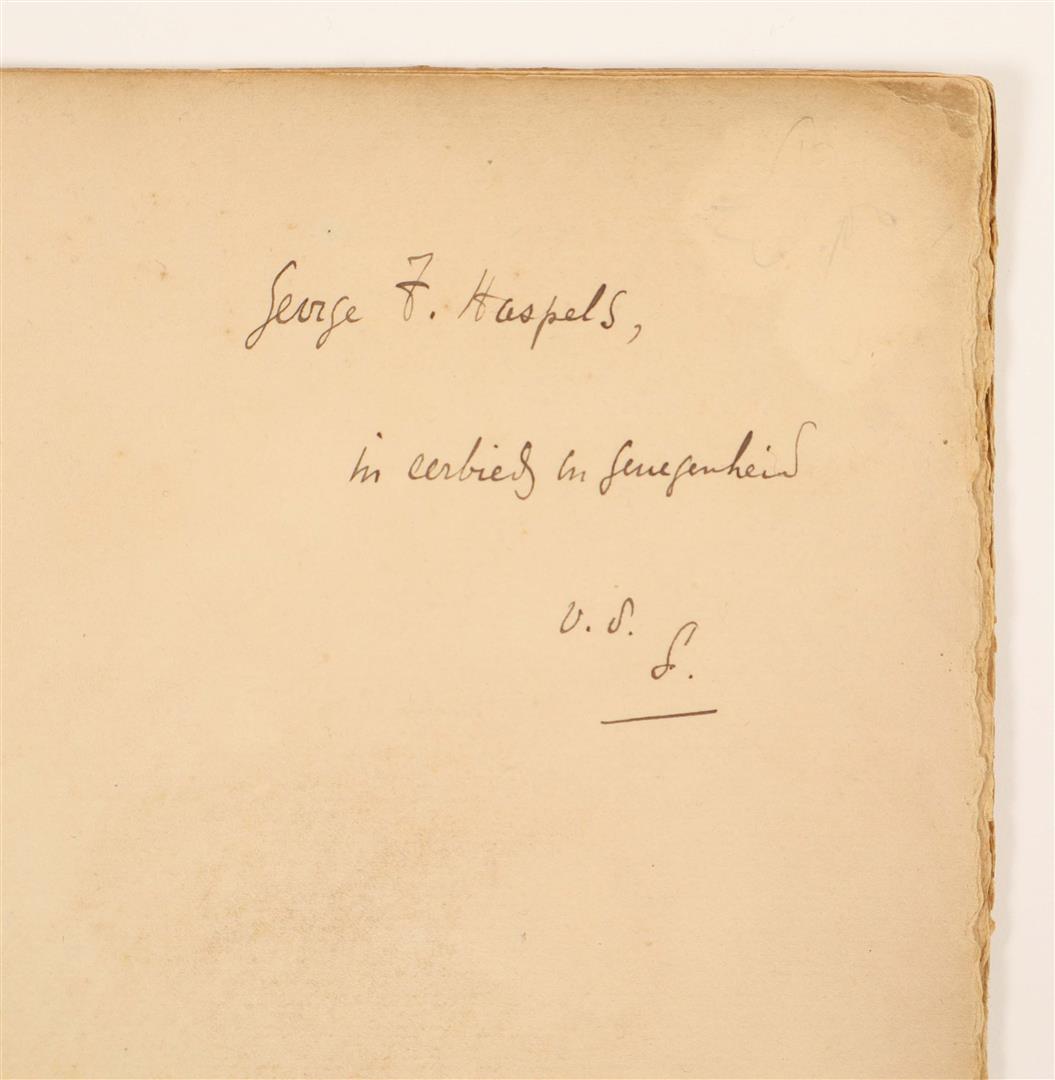 George F. Haspels,
in eerbied en genegenheid
v. d. S.